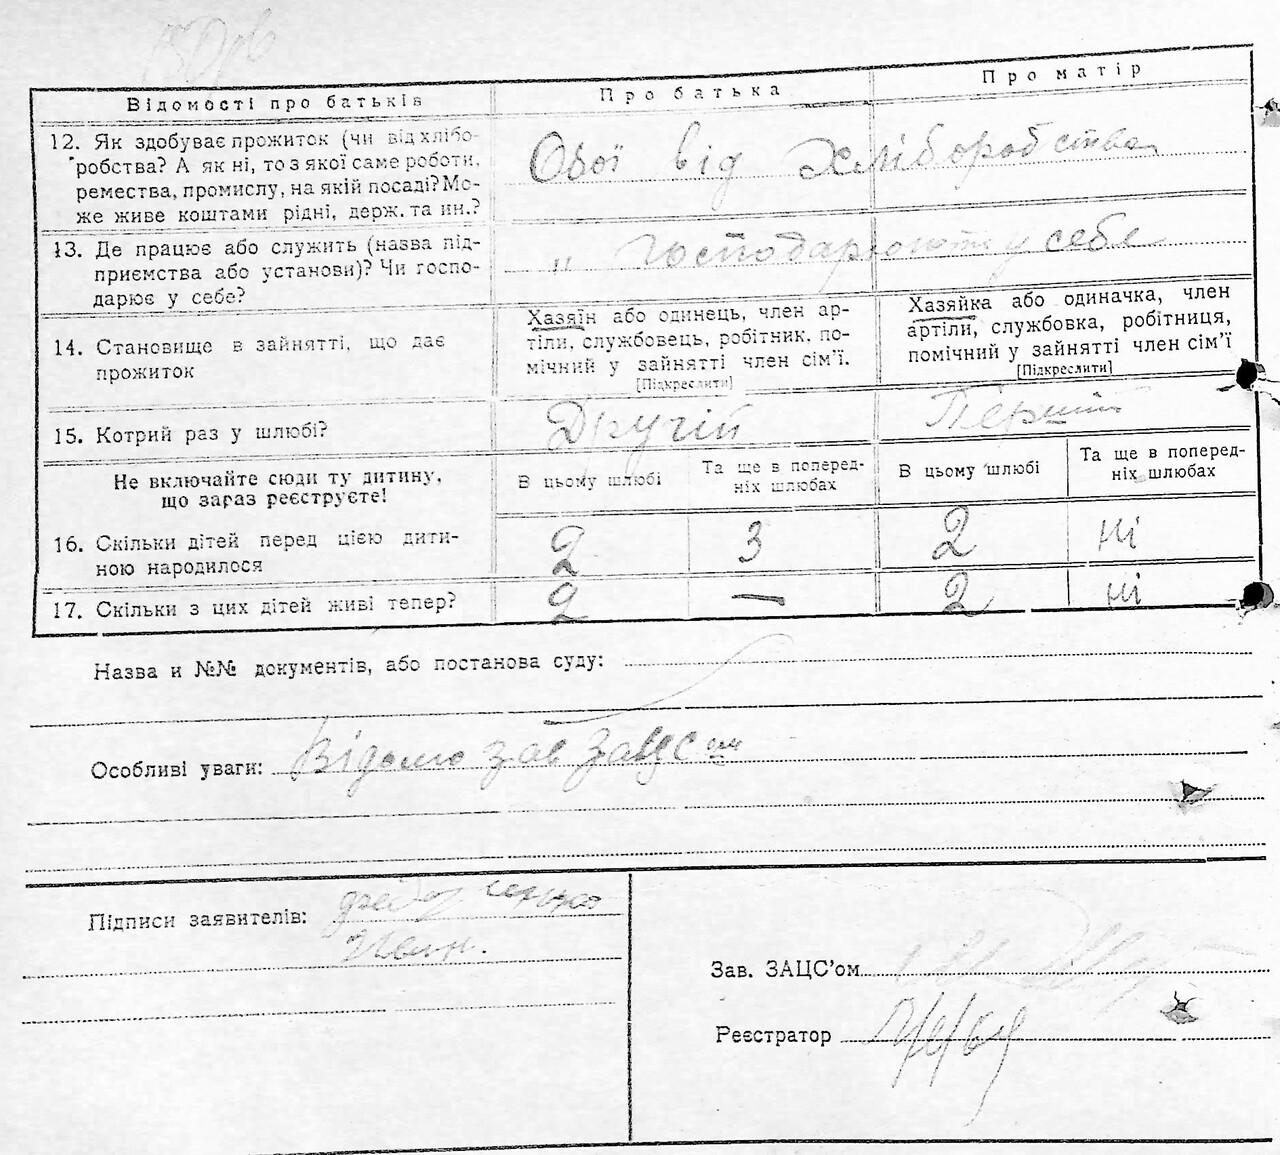 Відомості про батьків
Про батька
Про матір
12. Як здобуває прожиток (чи від хлібо-
робства? А як ні, то з якої саме роботи,
ремества, промислу, на якій посаді? Мо-
же живе коштами рідні, держ. та ин.?
Обої від хліборобства
13. Де працює або служить (назва під-
приємства або установи)? Чи госпо-
дарює у себе?
" господарюють у себе
14. Становище в зайнятті, що дає
прожиток
Хазяїн або одинець, член ар-
тіли, службовець, робітник, по-
мічний у зайнятті член сім'ї.
[Підкреслити]
Хазяйка або одиначка, член
артіли, службовка, робітниця,
помічний у зайнятті член сім'ї
[Підкреслити]
15. Котрий раз у шлюбі?
Другій
Перший
Не включайте сюди ту дитину,
що зараз реєструєте!
В цьому шлюбі
Та ще в поперед-
ніх шлюбах
В цьому шлюбі
Та ще в поперед-
ніх шлюбах
16. Скільки дітей перед цією дити-
ною народилося
2 3 2 ні
17. Скільки з цих дітей живі тепер?
2 — 2 ні
Назва и №№ документів, або постанова суду:
Особливі уваги: Відомо зав
Підписи заявителів:
Зав. ЗАЦС'ом
Реєстратор